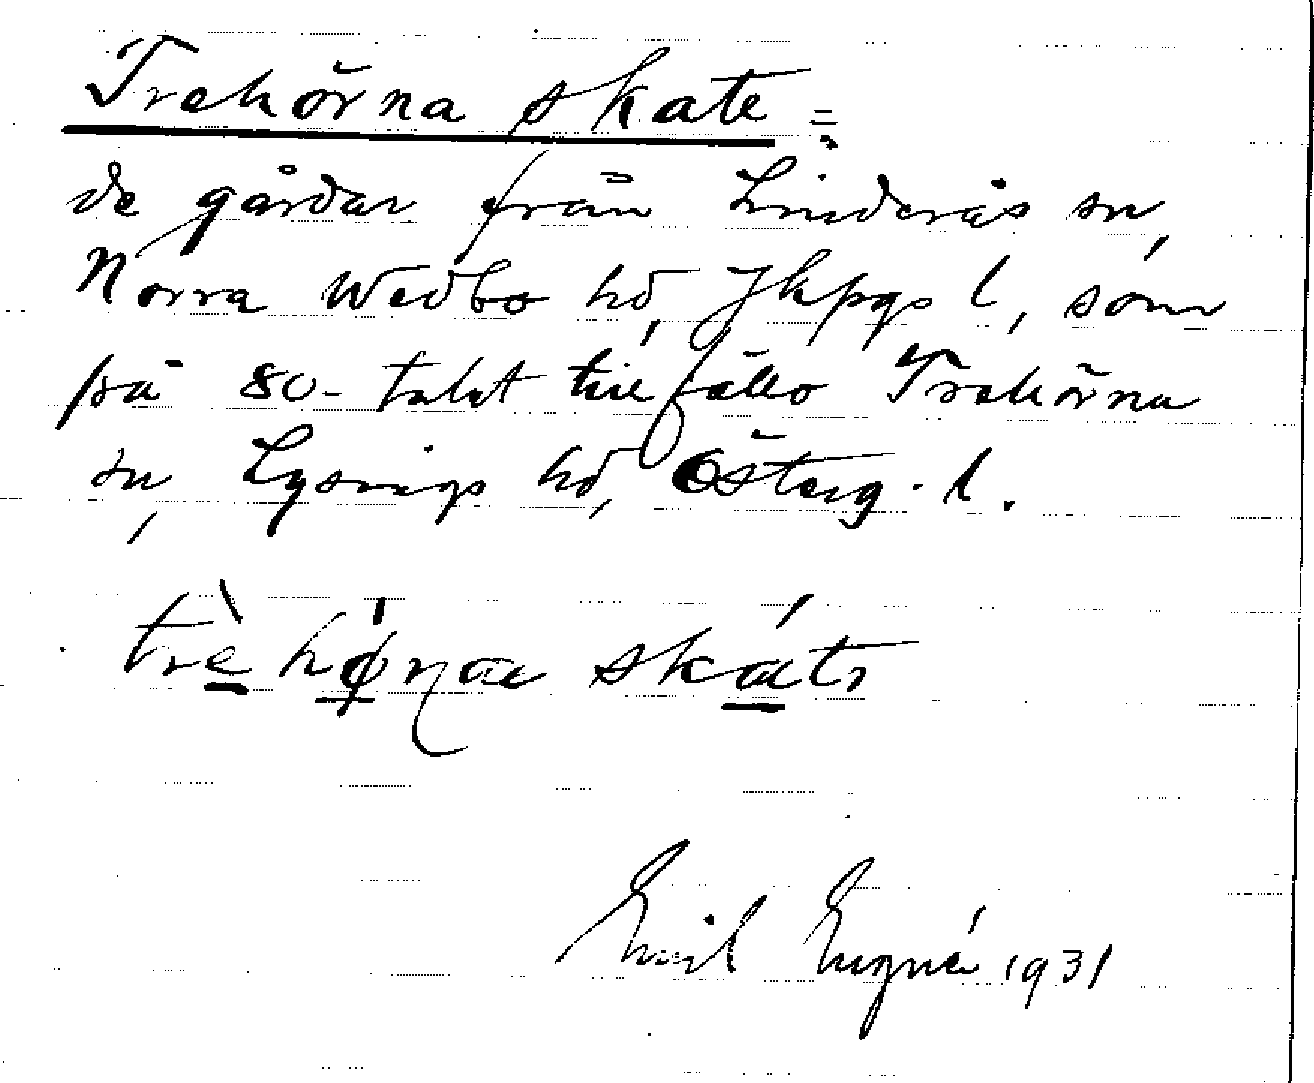 Trehörna skate =
de gårdar från Linderås sn,
Norra Wedbo hd, Jkpgs l, som
på 80-talet tillföllo Trehörna
sn, Lysings hd, Österg. l.
trè hø̀ṇa skátə
Emil Engné 1931